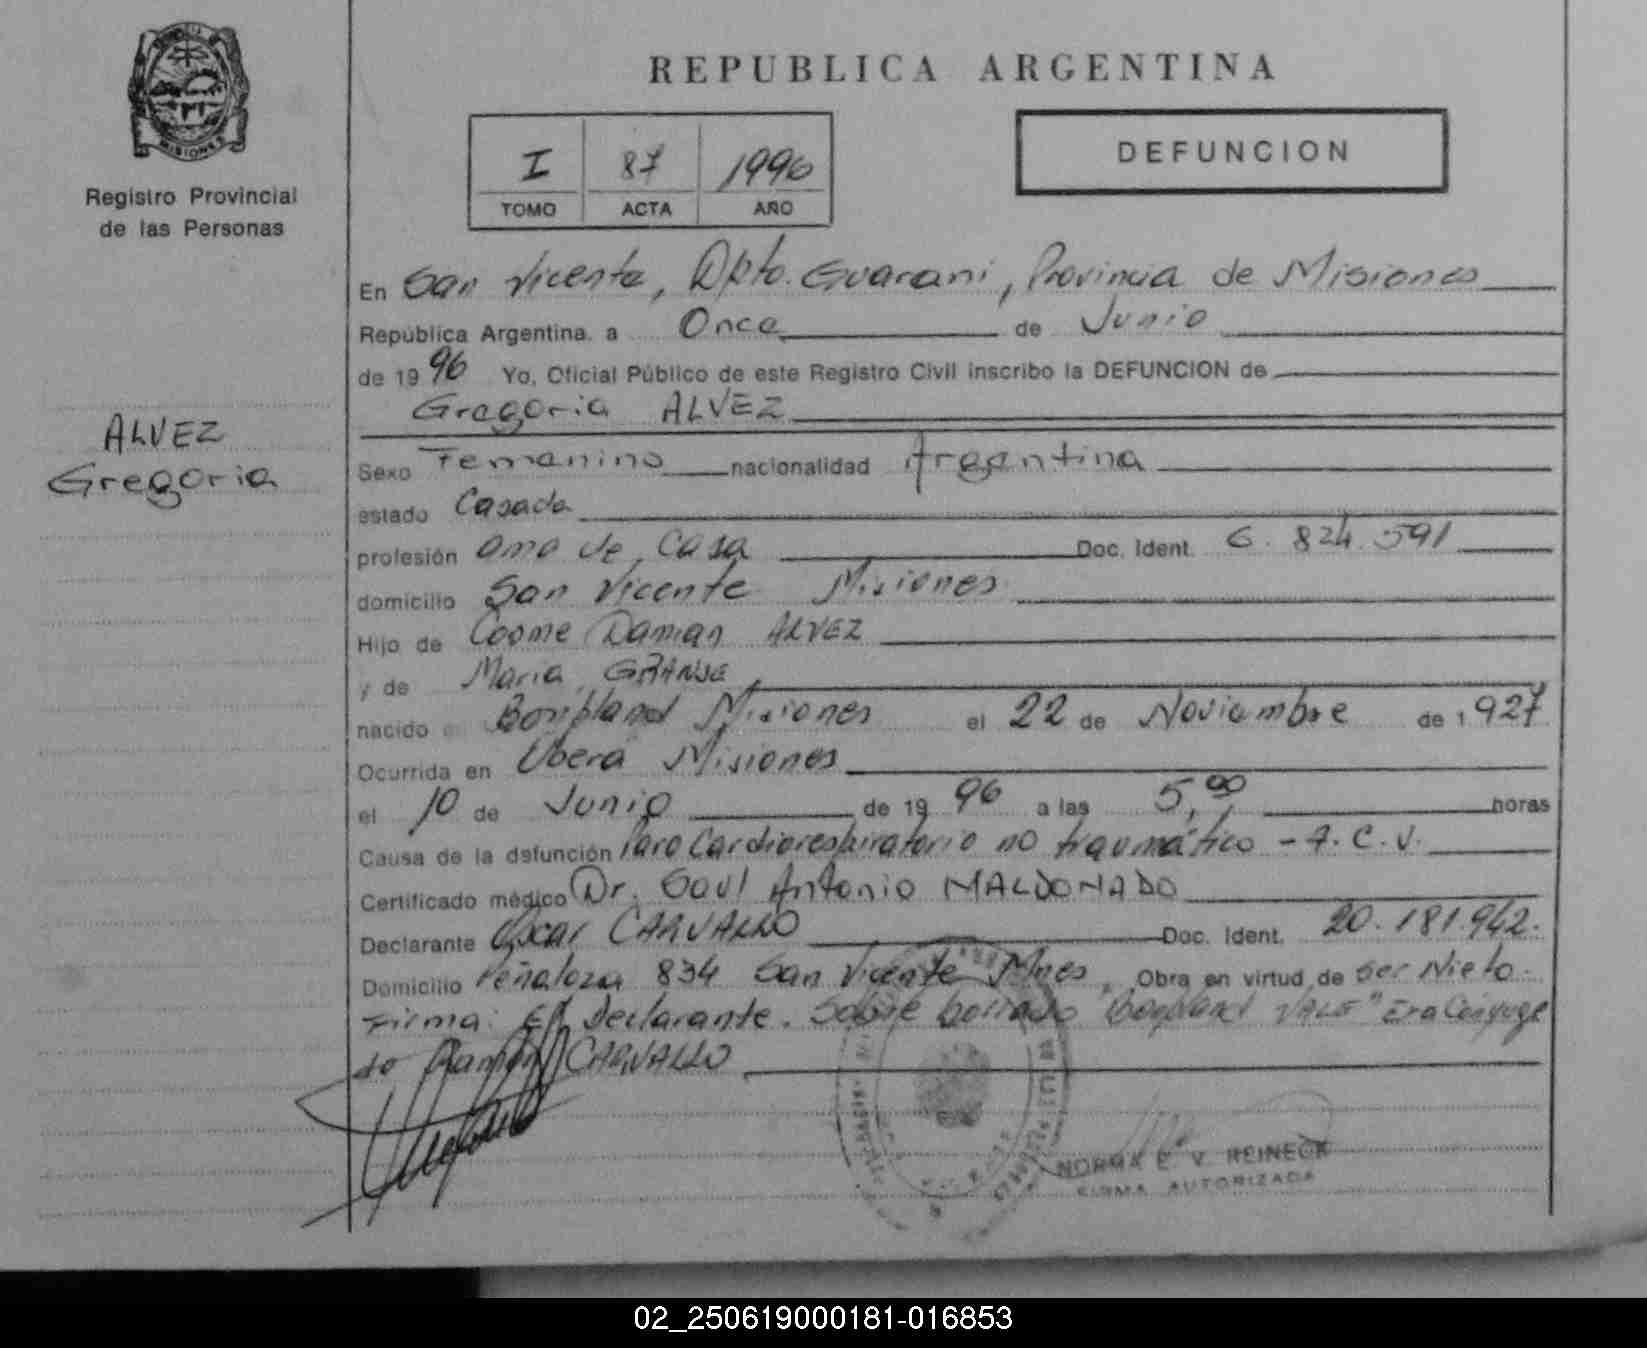 REPUBLICA ARGENTINA
MISIONES
Registro Provincial
de las Personas
I 87 1996
TOMO ACTA AÑO
DEFUNCION
En San Vicente, Dpto. Guarani, Provincia de Misiones
República Argentina, a Once de Junio
de 1996 Yo, Oficial Público de este Registro Civil inscribo la DEFUNCION de
Gregoria ALVEZ
ALVEZ
Gregoria
Sexo Femenino nacionalidad Argentina
estado Casada
profesión ama de Casa Doc. Ident. 6.824.591
domicilio San Vicente Misiones
Hijo de Cosme Damian ALVEZ
y de Maria
nacido Bonpland Misiones el 22 de Noviembre de 1927
Ocurrida en Obera Misiones
el 10 de Junio de 1996 a las 5,00 horas
Causa de la defunción Paro Cardiorespiratorio no traumático - A.C.V.
Certificado médico Dr. Saul Antonio MALDONADO
Declarante Oscar CARVALLO Doc. Ident. 20.181.942.
Domicilio Peñaloza 834 San Vicente Mnes, Obra en virtud de ser Nieto.
Firma: El Declarante. Sobre borrado "Bonpland VALE" Era Cónyuge
de Ramón CARVALLO
NORMA E. V. REINECK
FIRMA AUTORIZADA
02_250619000181-016853